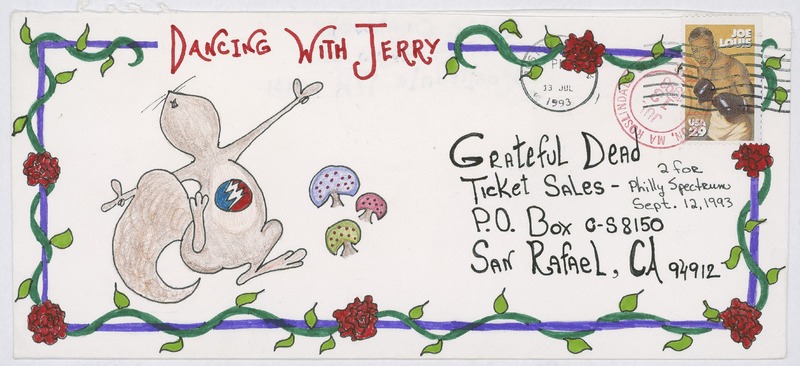 DANCING WITH JERRY
JOE
LOUIS
USA
29
PM
13 JUL
1993
Grateful Dead
Ticket Sales -
2 for
Philly Spectrum
Sept. 12, 1993
P.O. Box C-S8150
San Rafael, CA 94912